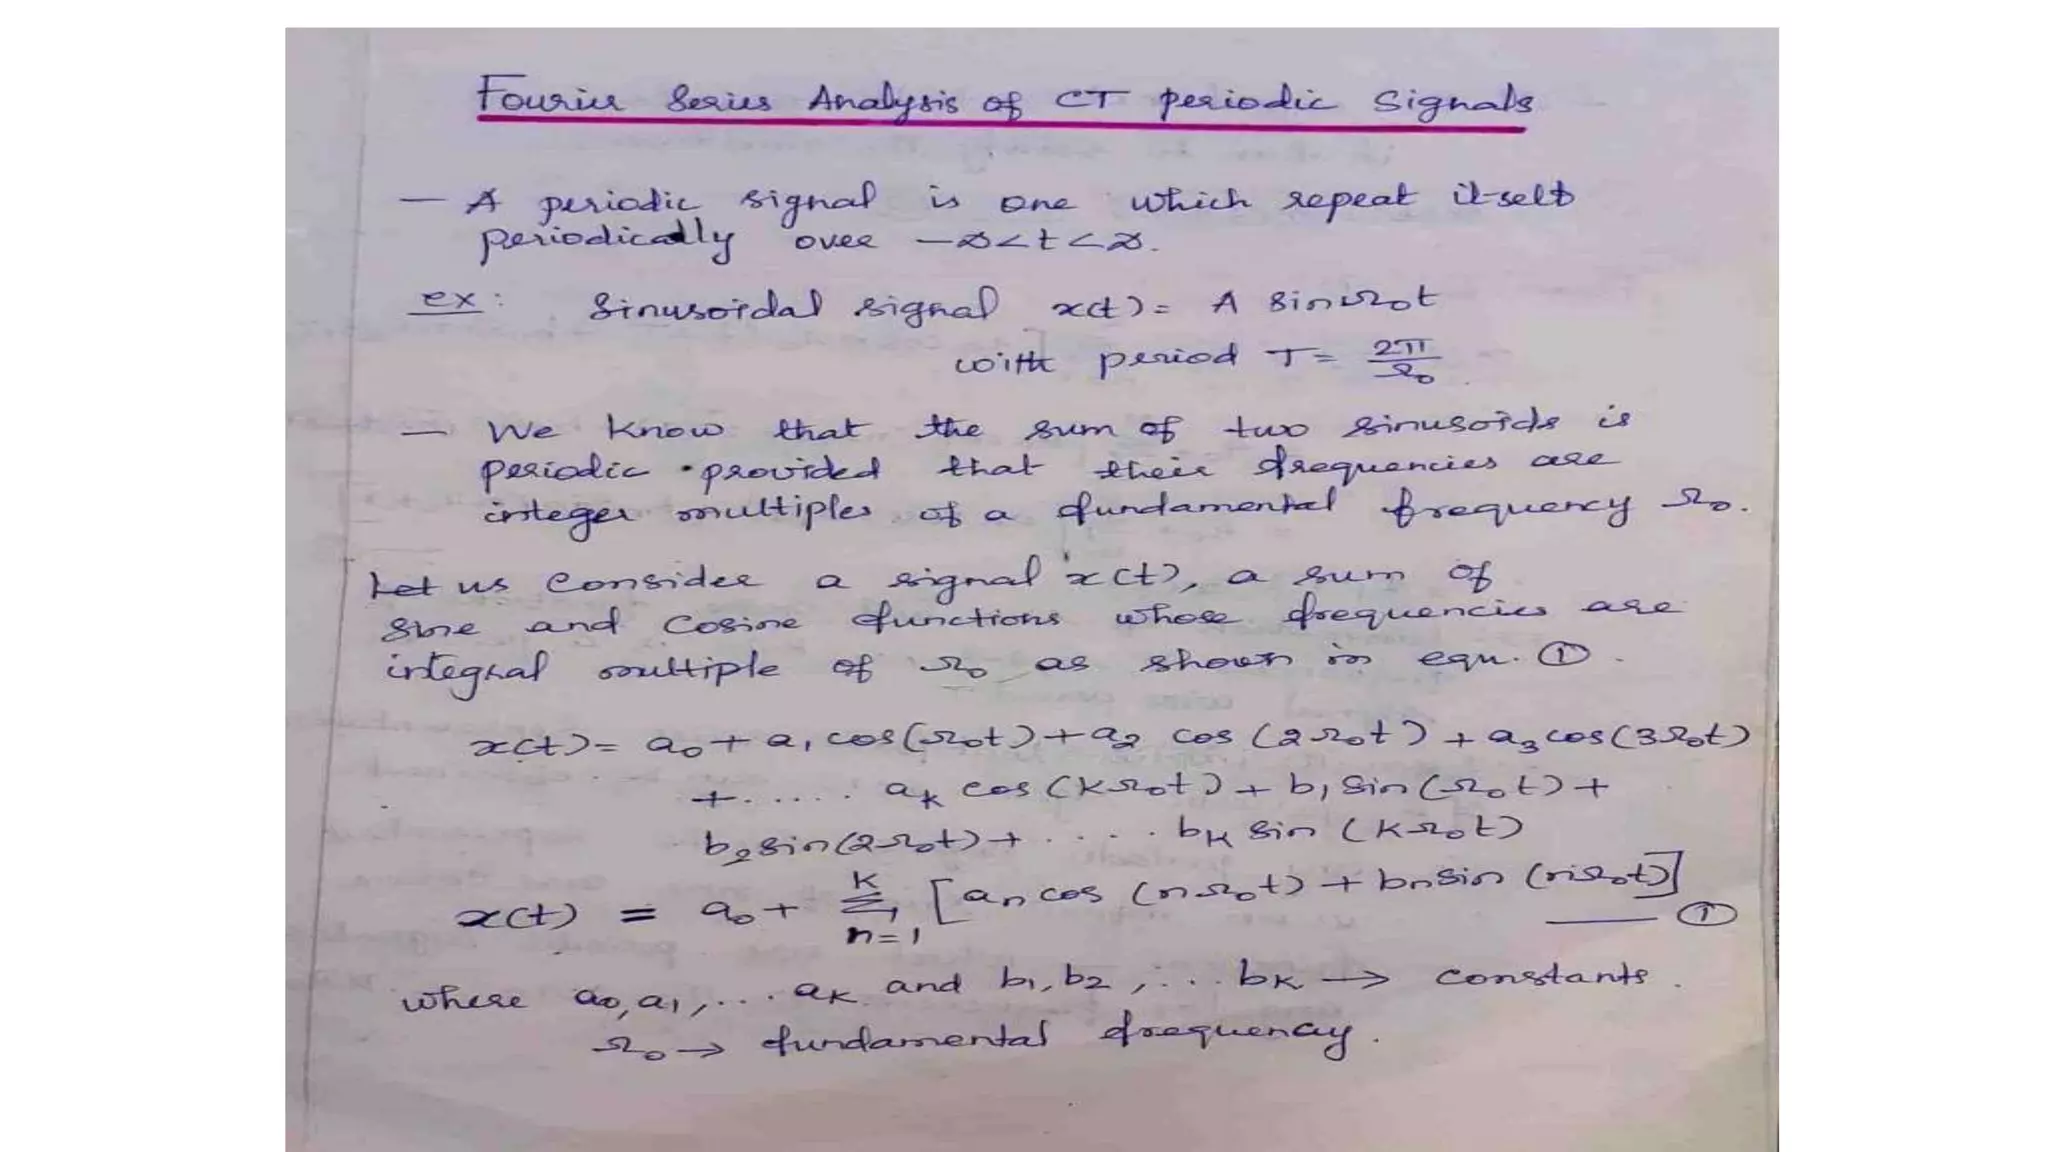 Fourier Series Analysis of CT periodic Signals
— A periodic signal is one which repeat itself
periodically over -∞<t<∞.
ex: Sinusoidal signal x(t) = A sin Ω₀t
with period T = 2π/Ω₀
— We know that the sum of two sinusoids is
periodic provided that their frequencies are
integer multiples of a fundamental frequency Ω₀.
Let us consider a signal x(t), a sum of
sine and cosine functions whose frequencies are
integral multiple of Ω₀ as shown in equ. ①.
x(t) = a₀ + a₁ cos(Ω₀t) + a₂ cos (2Ω₀t) + a₃ cos(3Ω₀t)
+ ..... aₖ cos (kΩ₀t) + b₁ sin (Ω₀t) +
b₂ sin(2Ω₀t) + .... bₖ sin (kΩ₀t)
x(t) = a₀ + K Σ n=1 [aₙ cos (nΩ₀t) + bₙ sin (nΩ₀t)] — ①
where a₀, a₁, ... aₖ and b₁, b₂, ... bₖ → constants.
Ω₀ → fundamental frequency.